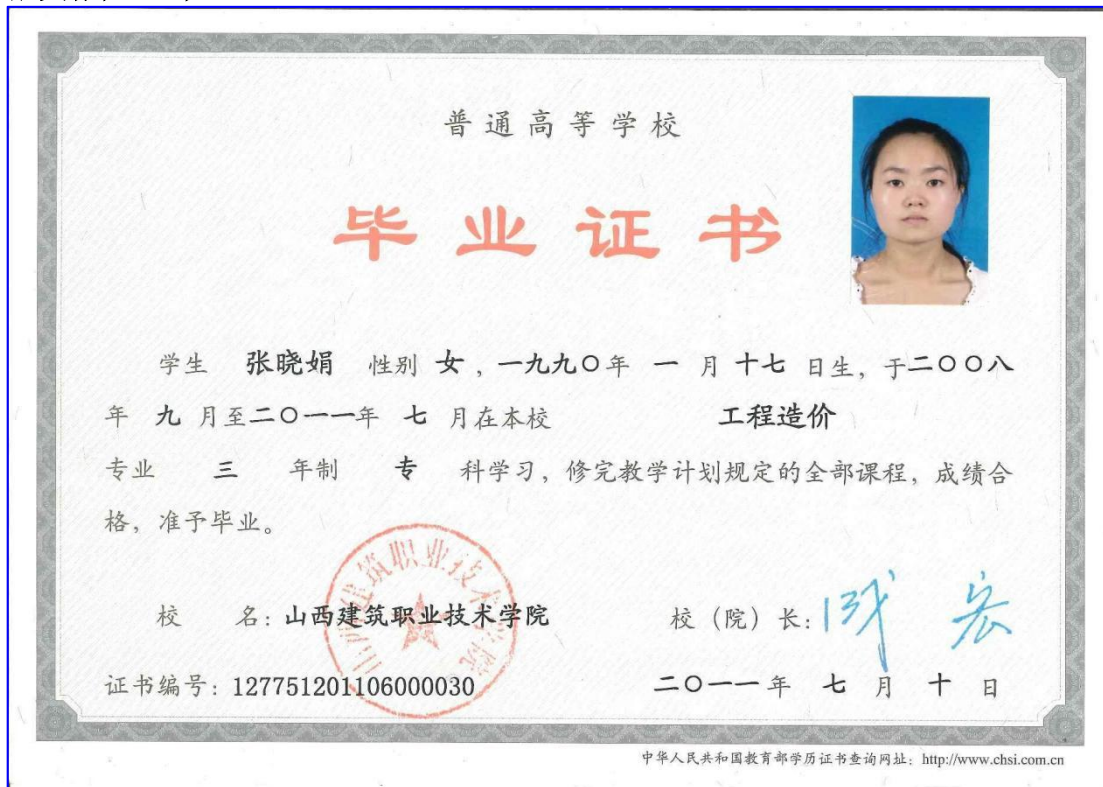 普通高等学校
毕业证书
学生 张晓娟 性别 女，一九九〇年 一 月 十七 日生，于二〇〇八
年 九 月至二〇一一年 七 月在本校 工程造价
专业 三 年制 专 科学习，修完教学计划规定的全部课程，成绩合
格，准予毕业。
山西建筑职业技术学院
校 名：山西建筑职业技术学院 校（院）长：
证书编号：127751201106000030 二〇一一年 七 月 十 日
中华人民共和国教育部学历证书查询网址：http://www.chsi.com.cn